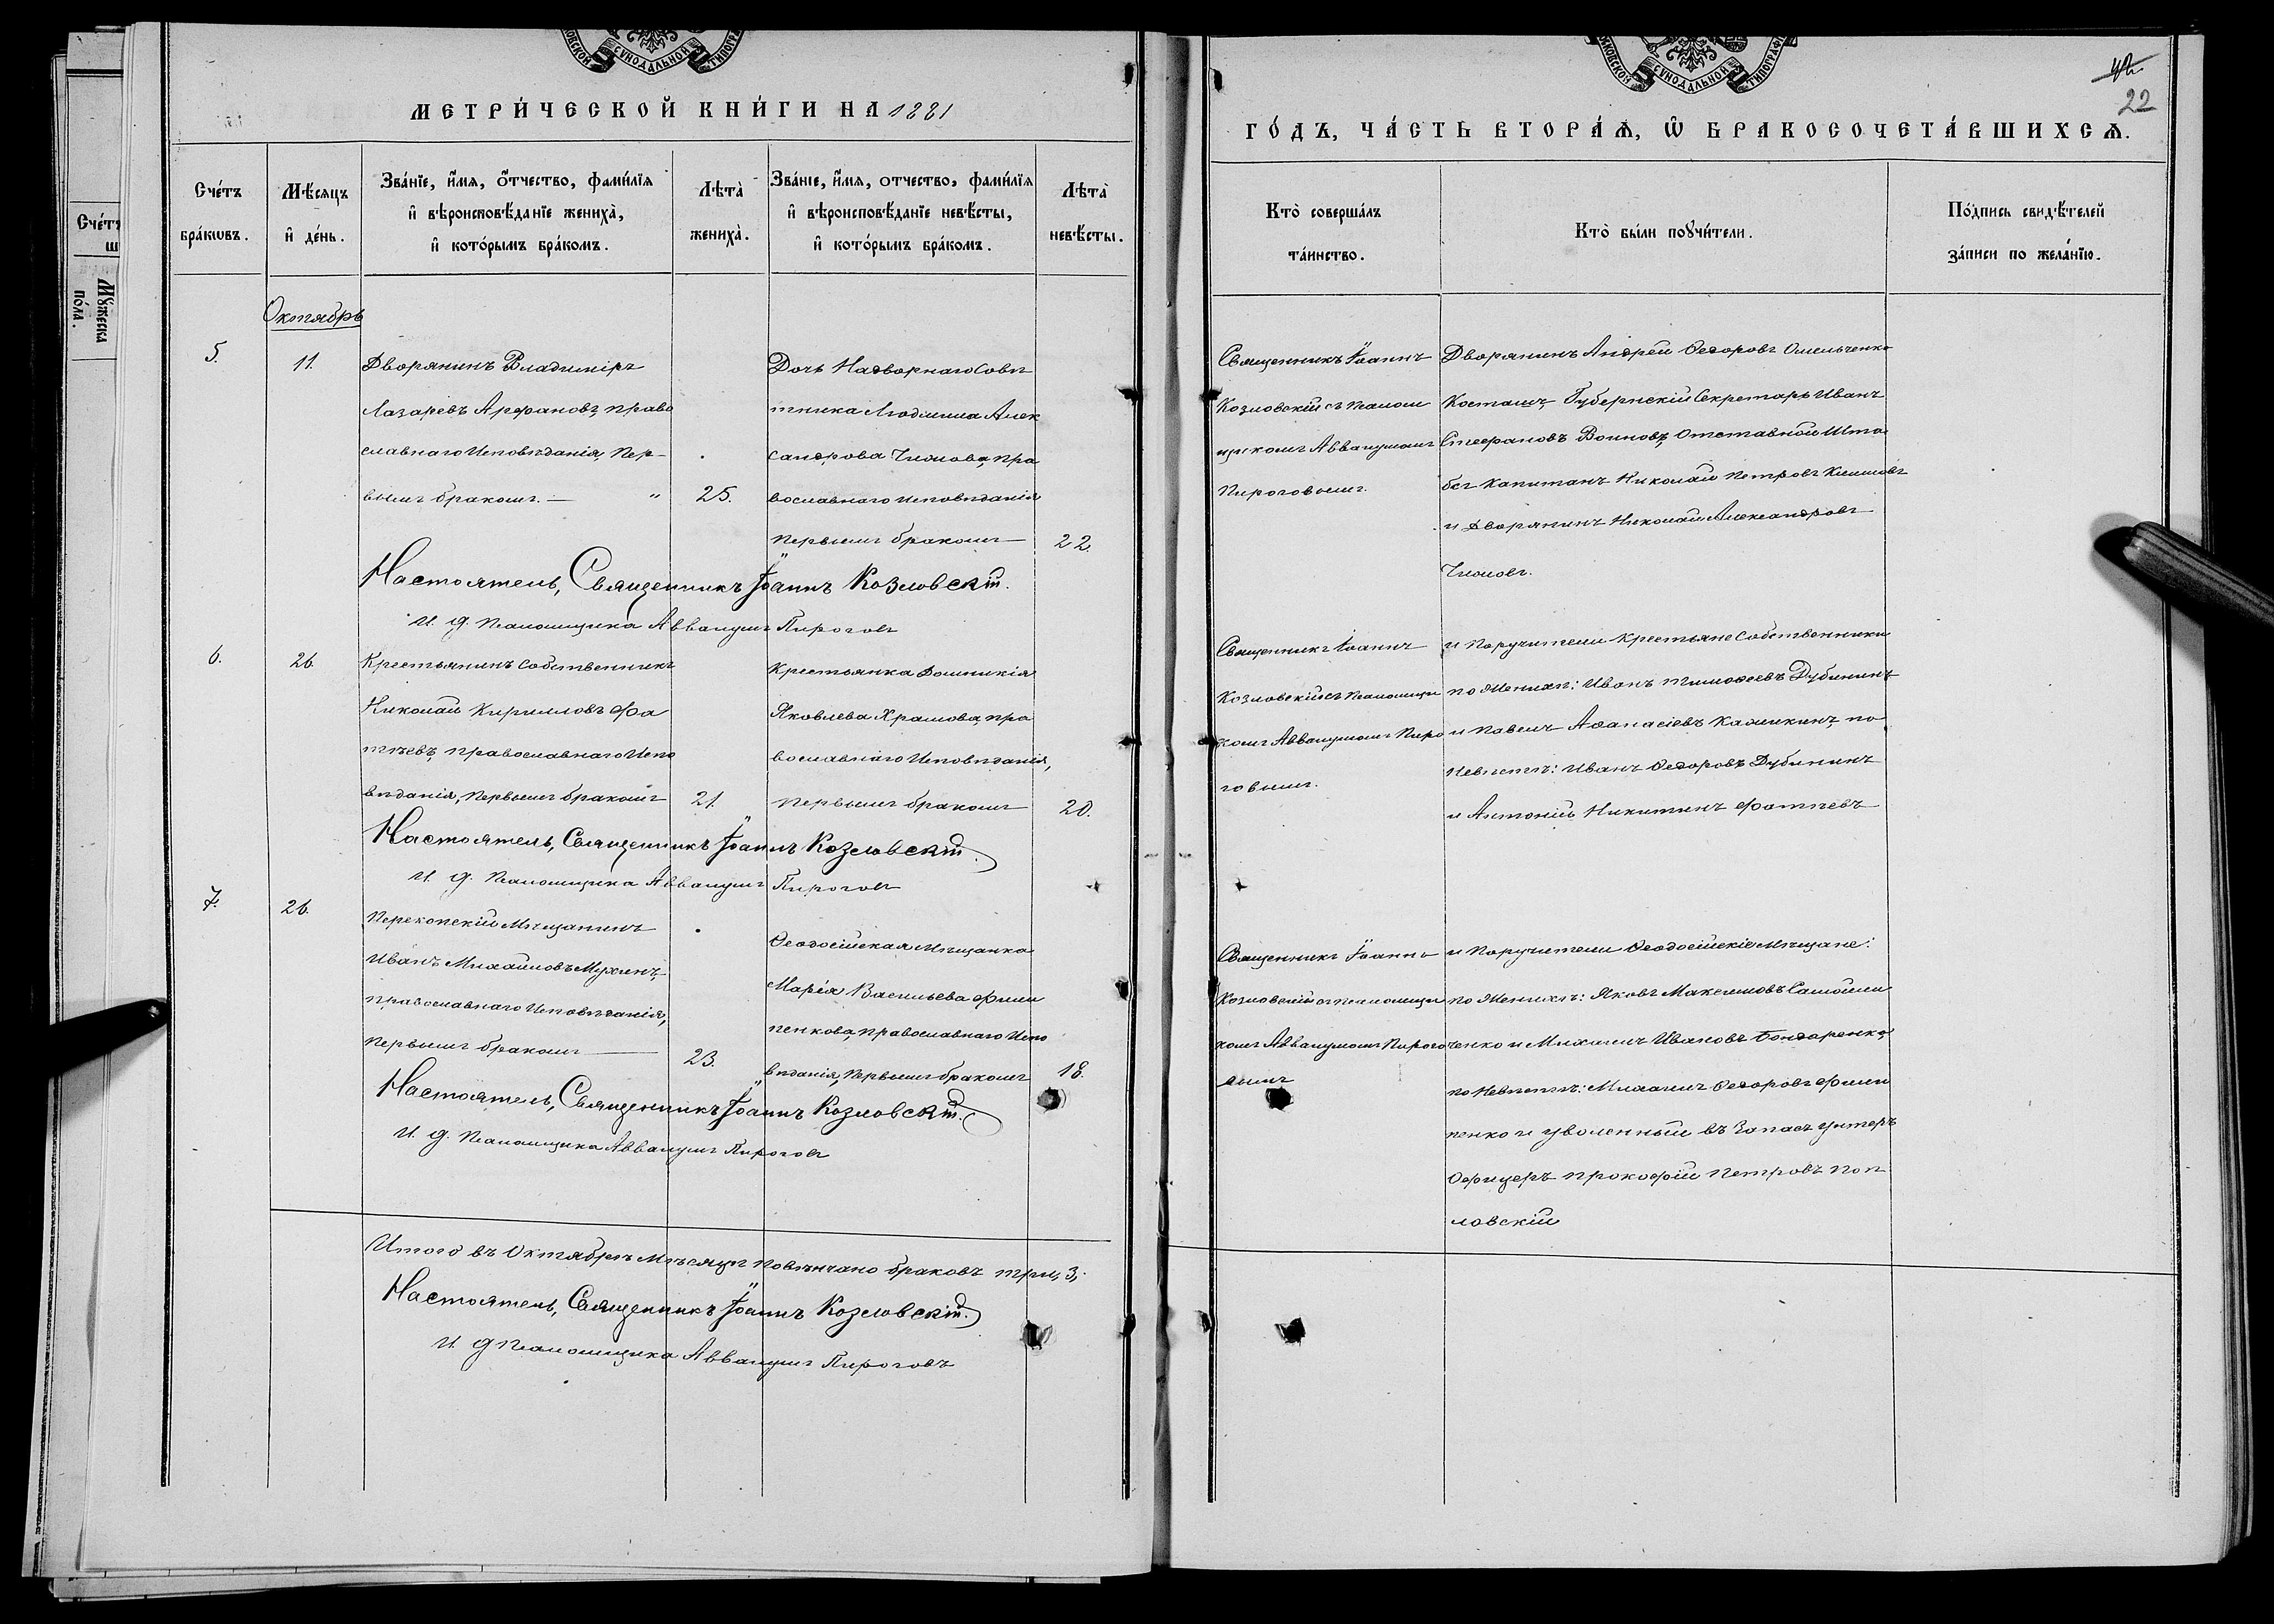 МЕТРИ́ЧЕСКОЙ КНИ́ГИ НА 1881
Сче́тъ бра́кѡвъ.
Мѣ́сяцъ и҆ де́нь.
Зва́нїе, и҆́мя, ѻ҆́тчество, фами́лїя и҆ вѣроисповѣ́данїе жениха̀, и҆ кото́рымъ бра́комъ.
Лѣта̀ жениха̀.
Зва́нїе, и҆́мя, отчество, фами́лїя и҆ вѣроисповѣ́данїе невѣ́сты, и҆ кото́рымъ бра́комъ.
Лѣта̀ невѣ́сты.
Октябрь
5.
11.
Дворянинъ Владиміръ
Лазаревъ Арфановъ, право
славнаго Исповѣданія, Пер-
вымъ бракомъ. —
25.
Дочь Надворнаго Совѣ
тника Людмила Алек
сандрова Чиомова, пра
вославнаго исповѣданія
первымъ бракомъ
22.
Настоятель, Священникъ Іоаннъ Козловскій.
И. д. Псаломщика Аввакумъ Пироговъ
6.
26
Крестьянинъ Собственникъ
Николай Кирилловъ Фа
тѣевъ, православнаго Испо
вѣданія, первымъ бракомъ
21.
Крестьянка Домникія
Яковлева Храмова, пра
вославнаго Исповѣданія,
первымъ бракомъ
20.
Настоятель, Священникъ Іоаннъ Козловскій.
И. д. Псаломщика Аввакумъ Пироговъ
7.
26.
Перекопскій Мѣщанинъ
Иванъ Михайловъ Мухинъ,
православнаго Исповѣданія,
Первымъ бракомъ
23.
Ѳеодосійская Мѣщанка
Марія Васильева Фили
пенкова, православнаго Испо
вѣданія, Первымъ бракомъ
18.
Настоятель, Священникъ Іоаннъ Козловскій.
И. д. Псаломщика Аввакумъ Пироговъ
Итого въ Октябрѣ Мѣсяцѣ повѣнчано браковъ три, 3,
Настоятель, Священникъ Іоаннъ Козловскій.
И. д Псаломщика Аввакумъ Пироговъ
42
22
ГО́ДЪ, ЧА́СТЬ ВТОРА́Ѧ, Ѡ҆ БРАКОСОЧЕТА́ВШИХСѦ.
Кто̀ соверша́лъ та́инство.
Кто̀ бы́ли поꙋчи́тели.
По́дпись свидѣ́телей за́писи по жела́нїю.
Священникъ Іоаннъ
Козловскій съ Псалом
щикомъ Аввакумомъ
Пироговымъ.
Дворянинъ Андрей Ѳедоровъ Омельченко
Косташъ, Губернскій Секретарь Иванъ
Стефановъ Воиновъ, Отставной Шта
бсъ Капитанъ Николай Петровъ Климовъ
и Дворянинъ Николай Александровъ
Чиомовъ.
Священникъ Іоаннъ
Козловскій съ Псаломщи
комъ Аввакумомъ Пиро
говымъ.
и Поручители Крестьяне Собственники
по Женихѣ: Иванъ Тимоѳеевъ Дубининъ
и Павелъ Аѳанасіевъ Калинкинъ, по
Невѣстѣ: Иванъ Ѳедоровъ Дубининъ
и Антоній Никитинъ Фатѣевъ
Священникъ Іоаннъ
Козловскій съ псаломщи
комъ Аввакумомъ Пирого
вымъ
и Поручители Ѳеодосійскіе Мѣщане:
по Женихѣ: Яковъ Максимовъ Самойли
ченко и Михаилъ Ивановъ Бондаренко,
по Невѣстѣ: Михаилъ Ѳедоровъ Фили
пенко и уволенный въ Запасъ унтеръ
Офицеръ Прокофій Петровъ Поп
ловскій
Сче́тъ
Мꙋ́жеска по́ла.
СѴНОДАЛЬНОЙ
СѴНОДАЛЬНОЙ